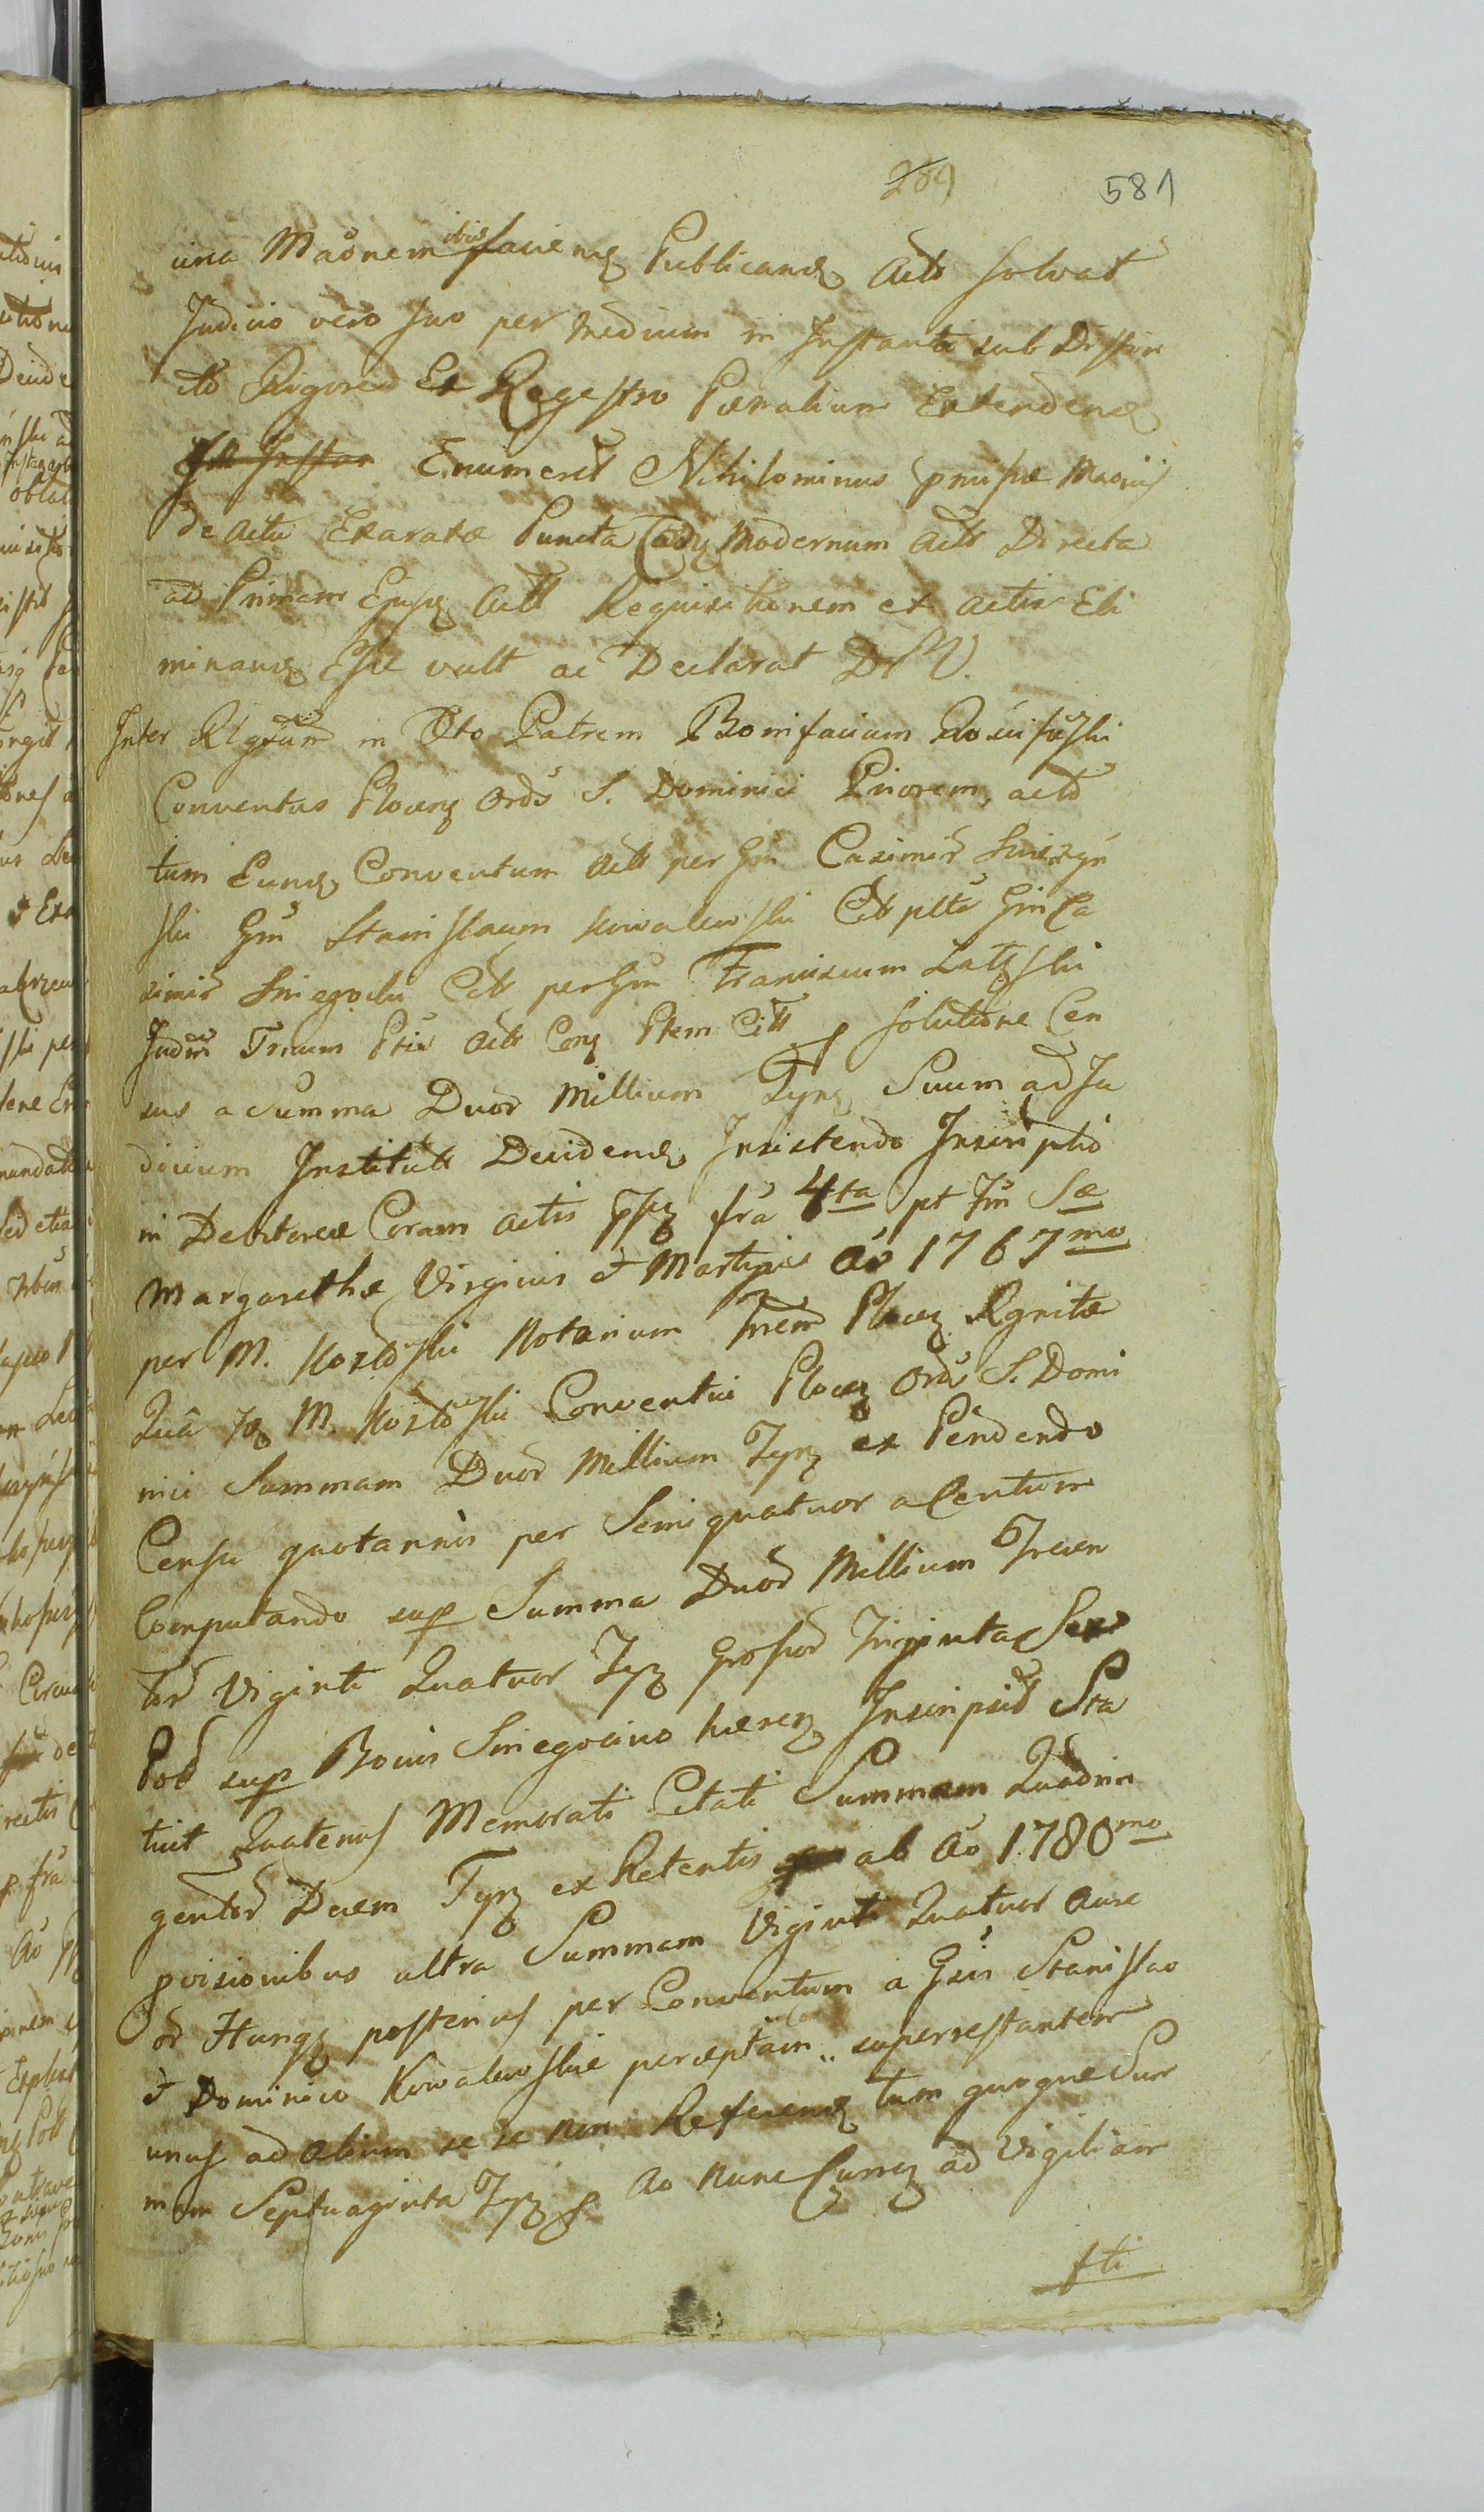 289 581
una Maõnem faciend Publicand Actt solvat
Judicio vero suo per medium in Instanti sub Distin
cto Rigore Ex Regestro Poenalium Extendend
Enumerat Nihilominus
de actu Exaratae Puncta modernum Actt Directa
ad Primam Actt Requisitionem ex actis Eli
minand Esse vult ac Declarat D P V.
Inter Rlgsum in Xto Patrem Bonifacium
Conventus Plocen Ords S. Dominici Priorem, actt
tum Eund Conventum Actt per Gm Casimir
ski Gm Stanislaum Kowalewski Citt Gm Ca
simir Citt per Gm Franciscum
Judm Trium Actt Ptem Citt solutione Cen
sus a Summa Duor Millium Tynf Suum ad Ju
dicium Institutt Decidend Insistendo Inscriptio
in Debitorea Coram actis fra 4ta pt Fm Sæ
Margarethæ Virginis et Martyris Ao 1767mo
per M. Notarium Plocen Rgnitæ
Quâ M. Conventui Plocen Ords S. Domi
nici Summam Duor Millium Tynf ex Pendendo
Censu quotannis per Semiquatuor a Centum
Computando sup Summa Duor Millium Trecen
tor Viginti Quatuor Tynf Grossor Triginta Sex
Pol sup Bonis Sniegocino hæren Inscripsit Sta
tuit Quatenus Memorati Citati Summam Quadrin
gentor Decem Tynf ex Retentis ab Ao 1780mo
pvisionibus ultra Summam Viginti Quatuor Aure
or Hung posterius per Conventum a Gsis Stanislao
et Dominico Kowalewskie perceptam superrestantem
unus ad alium se se non Referend tum quoque Sum
mam Septuaginta Tynf Ao nunc Curren ad Vigiliam
fti